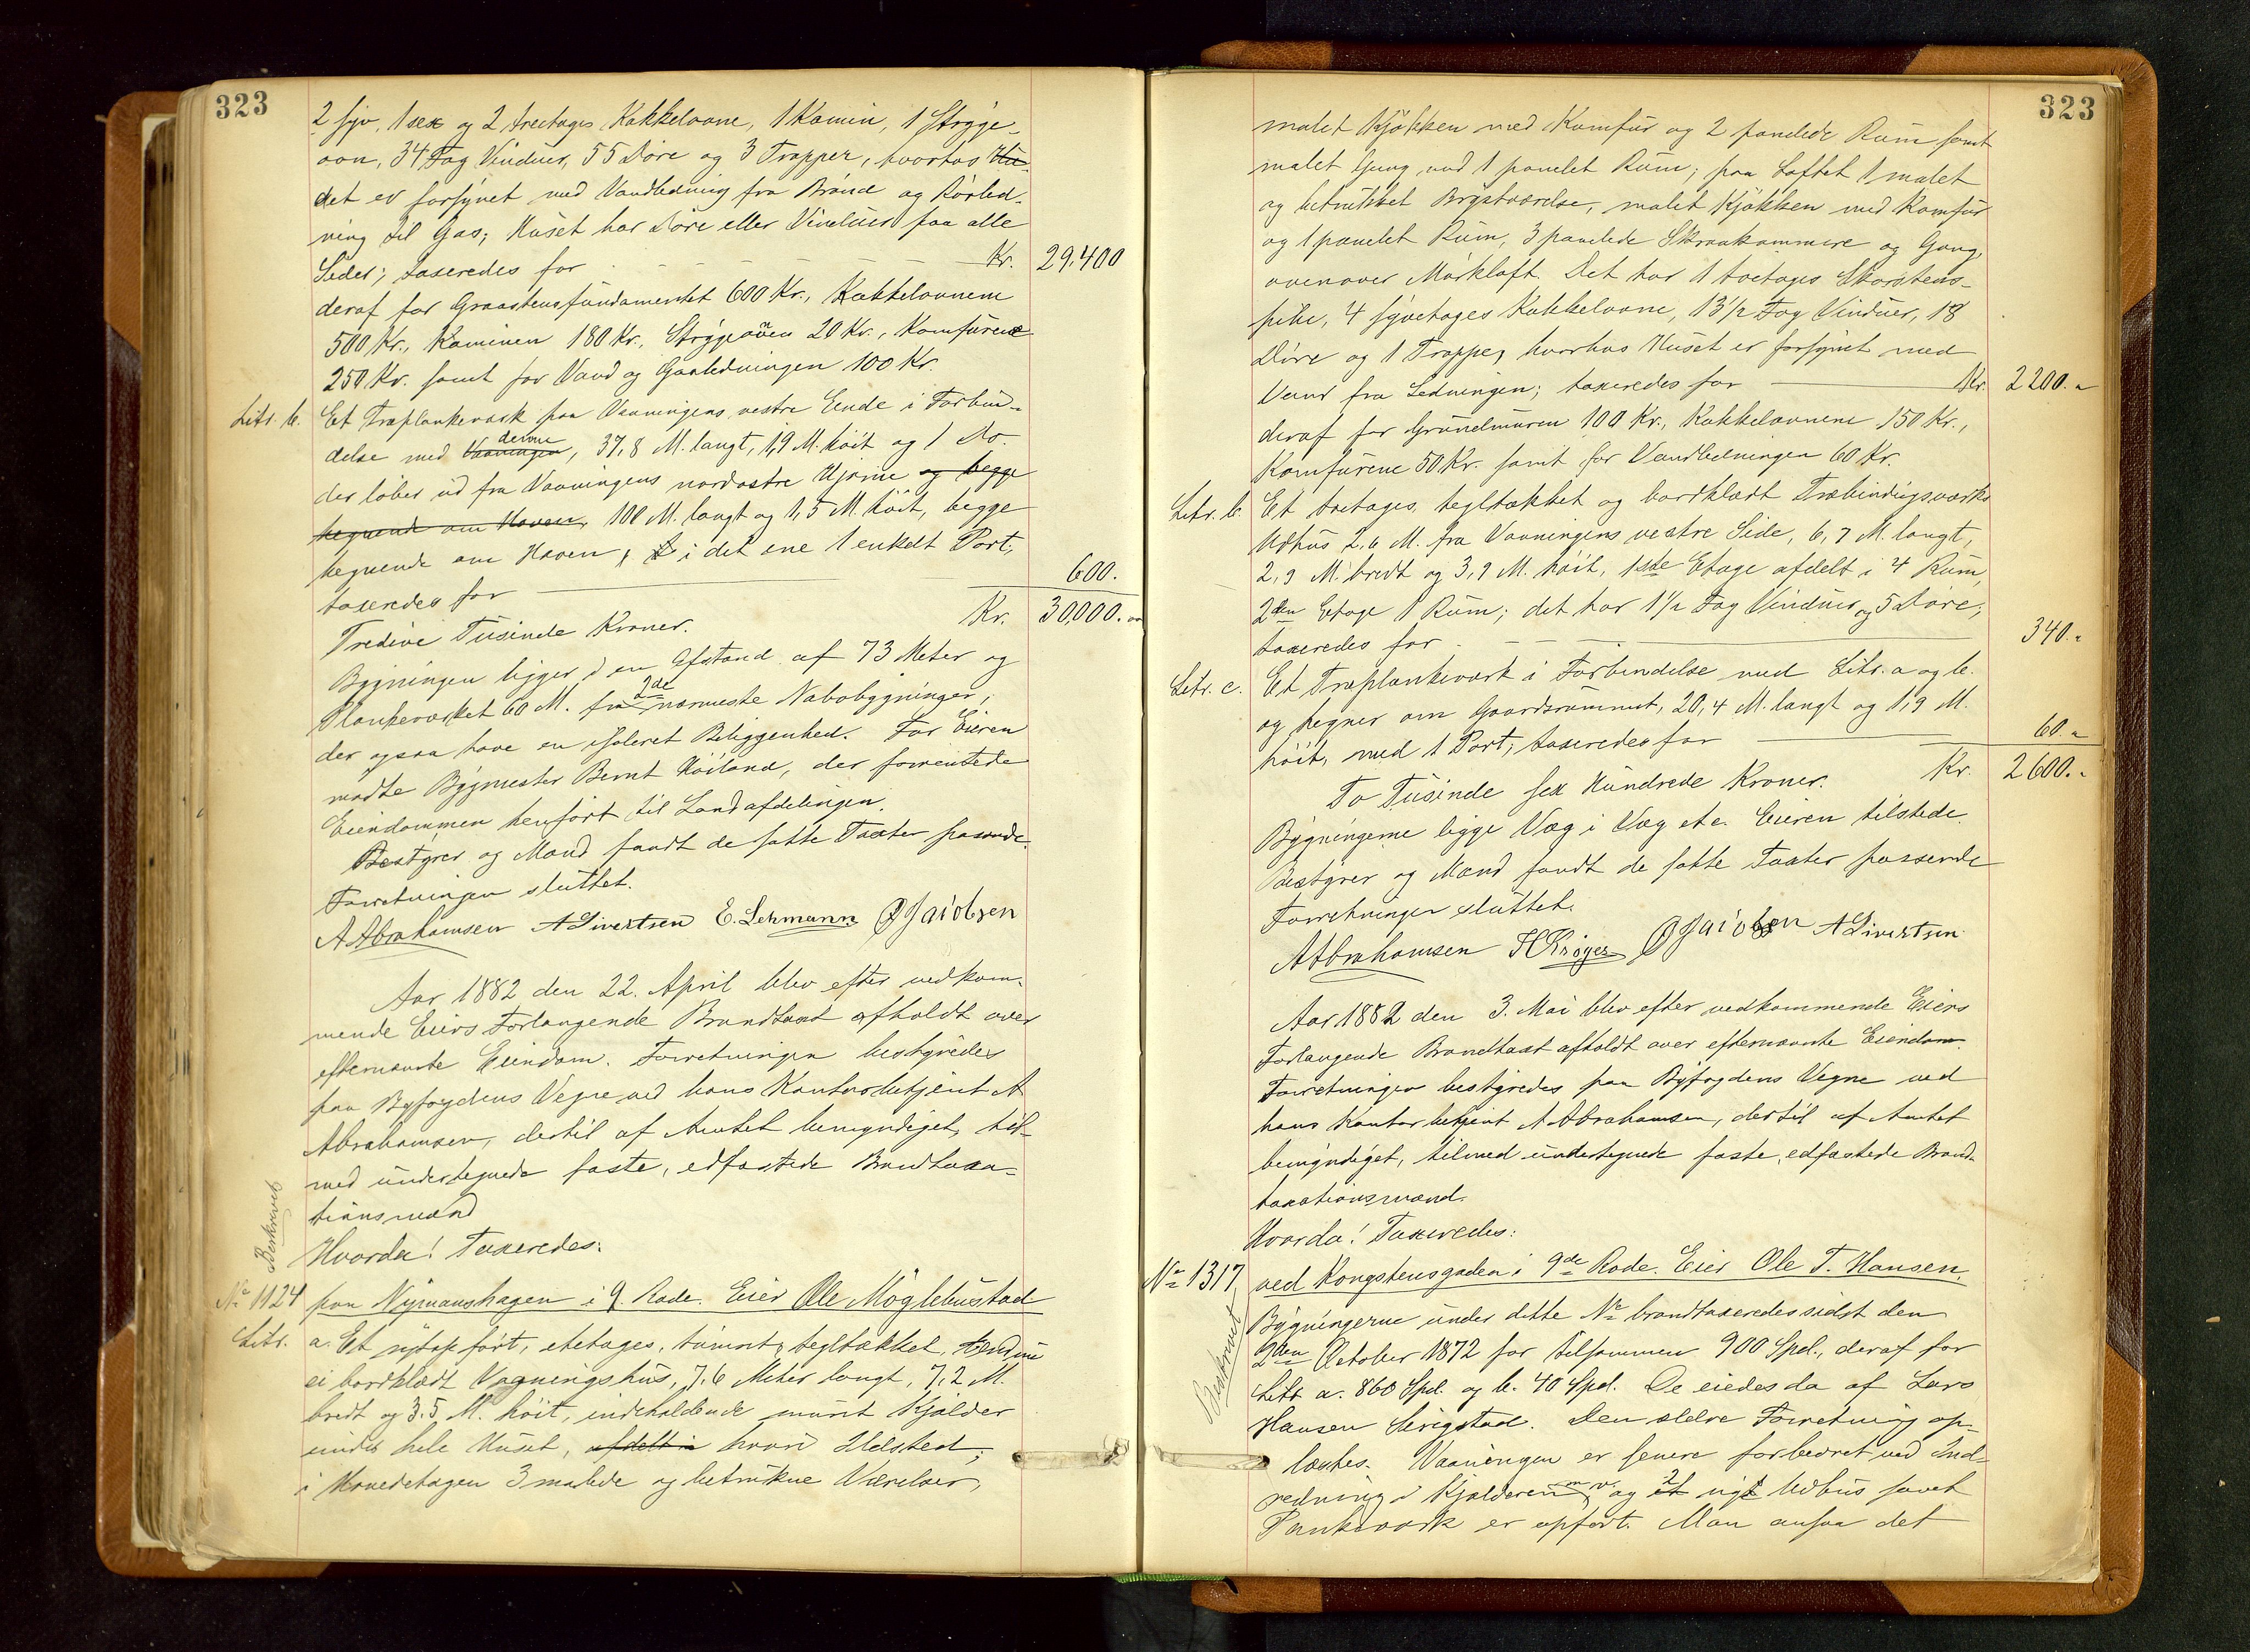 323
2 syv, 1 sex og 2 treetages Kakkelovne, 1 Kamin, 1 Stryge-
ovn, 34 Fag Vinduer, 55 Døre og 3 Trapper, hvorhos Hu-
det er forsynet med Vandledning fra Brønd og Rørled-
ning til Gas; Huset har Døre eller Vinduer paa alle
Sider; taxeredes for Kr. 29,400
deraf for Graastensfundamentet 600 Kr., Kakkelovnene
500 Kr., Kaminen 180 Kr., Strygeovnen 20 Kr., Komfurene
250 Kr. samt for Vand og Gasledningen 100 Kr.
Litr. b. Et Træplankeværk paa Vaaningens vestre Ende i Forbin-
delse med Vaaningen denne, 37,8 M. langt, 1,9 M. høit og 1 do.
der løber ud fra Vaaningens nordostre Hjørne og begge
hegnende om Haven, 108 M. langt og 1,5 M. høit, begge
hegnende om Haven, i det ene 1 enkelt Port;
taxeredes for 600.
Tredive Tusinde Kroner. Kr. 30,000.
Bygningen ligger i en Afstand af 73 Meter og
Plankeværket 60 M. fra 2de nærmeste Nabobygninger,
der ogsaa have en isoleret Beliggenhed. For Eieren
mødte Bygmester Bernt Höiland, der forventede
Eiendommen henført til Landafdelingen.
Bestyrer og Mænd fandt de satte Taxter passende.
Forretningen sluttet.
A Abrahamsen A Sivertsen E. Lehmann O Jacobsen
Aar 1882 den 22. April blev efter vedkom-
mende Eiers Forlangende Brandtaxt afholdt over
efternævnte Eiendom. Forretningen bestyredes
paa Byfogdens Vegne ved hans Kontorbetjent A
Abrahamsen, dertil af Amtet bemyndiget, til-
med undertegnede faste, edfæstede Brandtaxa-
tionsmænd
Beskrevet
Hvorda! Taxeredes:
No 1124 paa Nymanshagen i 9. Rode. Eier Ole Möglebustad
Litr. a. Et nyopført, etetages, tømret, tegltækket, endnu
ei bordklædt Vaaningshus, 7,6 Meter langt, 7,2 M.
bredt og 3,5 M. höit, indeholdende muret Kjælder
under hele Huset, afdelt i hvori Ildsted;
i Hovedetagen 3 malede og betrukne Værelser,
323
malet Kjökken med Komfur og 2 panelede Rum samt
malet Gang med 1 panelet Rum; paa Loftet 1 malet
og betrukket Brystværelse, malet Kjökken med Komfur
og 1 panelet Rum, 3 panelede Skraakammere og Gang,
ovenover Mörkloft. Det har 1 toetages Skorstens-
pibe, 4 syvetages Kakkelovne, 13 1/2 Fag Vinduer, 18
Döre og 1 Trappe, hvorhos Huset er forsynet med
Vand fra Ledningen; taxeredes for Kr. 2200.
deraf for Grundmuren 100 Kr., Kakkelovnene 150 Kr.,
Komfurene 50 Kr. samt for Vandledningen 60 Kr.
Litr. b. Et toetages, tegltækket og bordklædt Træbindingsværks
Udhus 2,6 M. fra Vaaningens vestre Side, 6,7 M. langt,
2,9 M. bredt og 3,9 M. höit, 1ste Etage afdelt i 4 Rum,
2den Etage 1 Rum; det har 1 1/2 Fag Vinduer og 5 Döre;
taxeredes for 340.
Litr. c. Et Træplankeværk i Forbindelse med Litr. a og b.
og hegner om Gaardsrummet, 20,4 M. langt og 1,9 M.
höit, med 1 Port; taxeredes for 60.
To Tusinde sex Hundrede Kroner. Kr. 2600.
Bygningerne ligge Væg i Væg etc. Eieren tilstede.
Bestyrer og Mænd fandt de satte Taxter passende
Forretningen sluttet.
A Abrahamsen H Kröger O Jacobsen A Sivertsen
Aar 1882 den 3. Mai blev efter vedkommende Eiers
Forlangende Brandtaxt afholdt over efternævnte Eiendom.
Forretningen bestyredes paa Byfogdens Vegne ved
hans Kontorbetjent A Abrahamsen, dertil af Amtet
bemyndiget, tilmed undertegnede faste, edfæstede Brand-
taxationsmænd.
Hvorda! Taxeredes:
No 1317 ved Kongstensgaden i 9de Rode. Eier Ole T. Hansen.
Beskrevet
Bygningerne under dette No brandtaxeredes sidst den
2den October 1872 for tilsammen 900 Spd., deraf for
Litr a. 860 Spd. og b. 40 Spd. De eiedes da af Lars
Hansen Serigstad. Den ældre Forretning op-
læstes. Vaaningen er senere forbedret ved Ind-
redning i Kjælderen m. v. og et nyt Udhus samt
Plankeværk er opfört. Man ansaa det